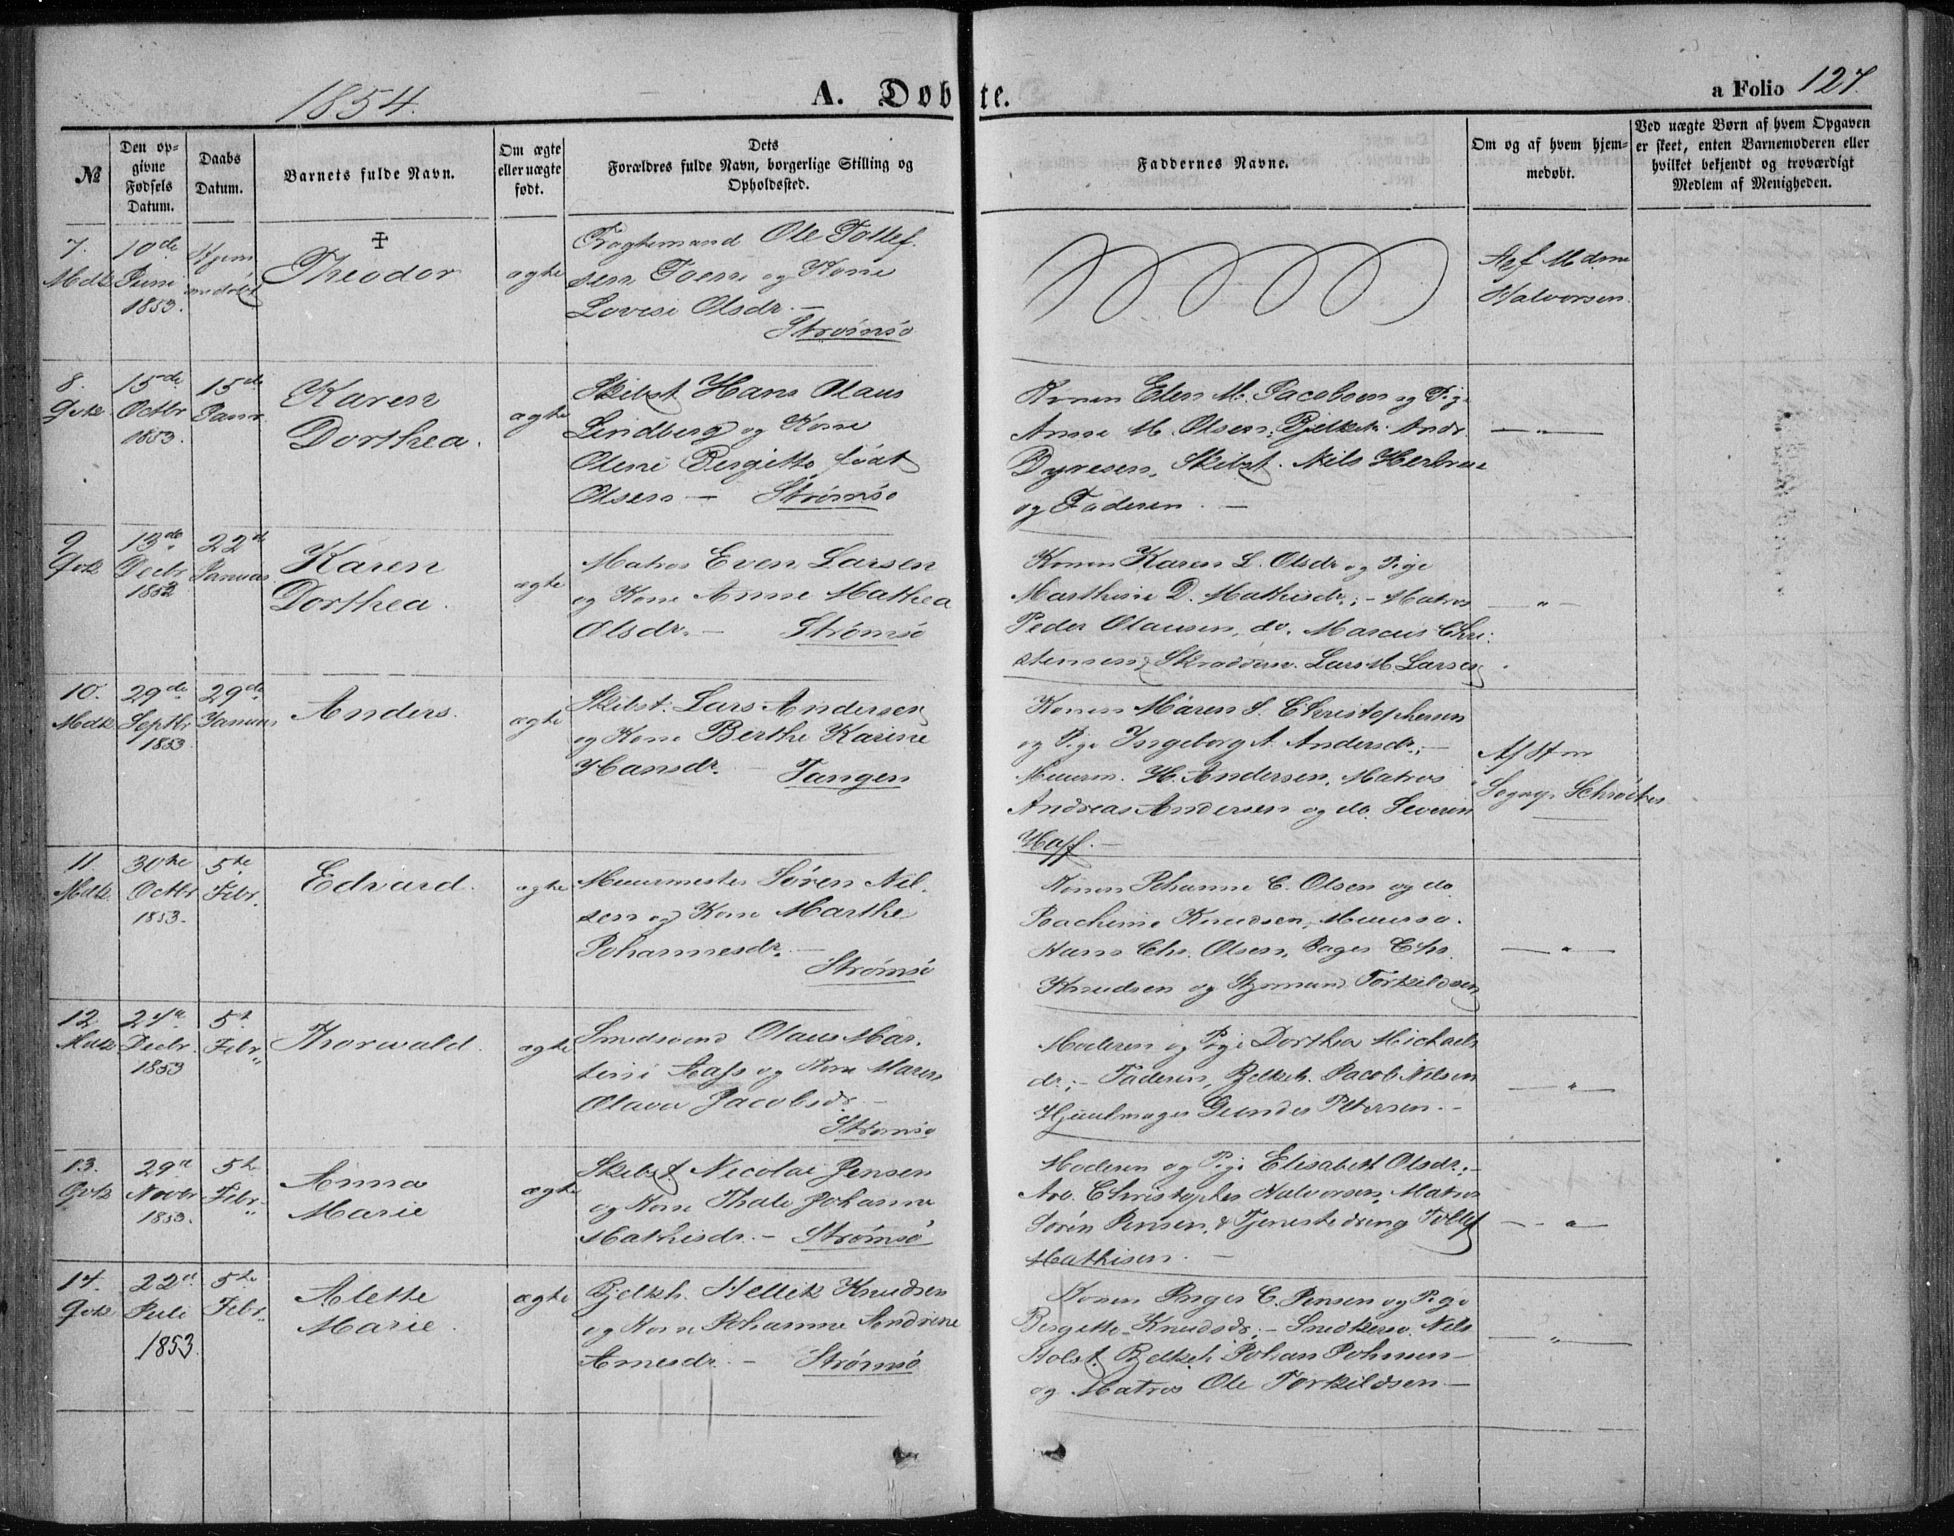 1854.
A. Døbte.
a Folio 127.
№
Den opgivne Fødsels Datum.
Daabs Datum.
Barnets fulde Navn.
Om ægte eller uægte født.
Dets Forældres fulde Navn, borgerlige Stilling og Opholdssted.
Faddernes Navne.
Om og af hvem hjemmedøbt.
Ved uægte Børn af hvem Opgaven er skeet, enten Barnemoderen eller hvilket bekjendt og troværdigt Medlem af Menigheden.
7. Mdk
10de Juni 1853.
Hjem
medøbt
Theodor
ægte
Ole Tollef.
sen Toen og Kone
Lovise Olsdr. –
Strømsø
Af Mdme
Halvorsen.
8. Qvk
15de Octbr 1853.
15de Janr.
Karen
Dorthea.
ægte
Skibst Hans Olaus
Lindberg og Kone
Oline Birgitte født
Olsen – Strømsø
Konen Elen M. Jacobsen og Pige
Anne M. Olsen; Bjelkeh. Andr.
Dyresen, Skibst. Nils
og Faderen. –
9 Qvk
13de Decbr 1852
22de Januar
Karen
Dorthea.
ægte
Matros Even Larsen
og Kone Anne Mathea
Olsdr. – Strømsø
Konen Karen L. Olsdr og Pige
Marthine D. Mathisdr.; – Matros
Peder Olausen, do. Marcus Chri-
stensen, Skræddersv. Lars M. Larsen
10. Mdk
29de Septbr 1853
29de Januar
Anders.
ægte
Skibst. Lars Andersen
og Kone Berthe Karine
Hansdr. – Tangen
Konen Maren S. Christophersen
og Pige Ingeborg A. Andersdr.; –
Muurm. H. Andersen, Matros
Andreas Andersen og do. Severin
Haff. –
Af Hr
Sognpr. Schrøter
11. Mdk.
30te Octbr 1853.
5te Febr.
Edvard.
ægte
Muurmester Søren Nil.
sen og Kone Marthe
Johannesdr. –
Strømsø
Konen Johanne C. Olsen og do
Joachime Knudsen, Muursv.
Hans Chr. Olsen, Chr.
Knudsen og Styrmand Torkildsen
12. Mdk
Decbr. 1853
5te Febr.
Thorwald.
ægte
Smedsvend Olaus Mar.
tini og Kone Maren
Olava Jacobsdr. –
Strømsø
Moderen og Pige Dorthea Michaels
dr.; – Faderen, Bjelkeh. Jacob Nilsen
Hjuulmager Gunder Petersen. –
13. Qvk
29de Novbr 1853.
5te Febr.
Anna
Marie
ægte
Skibst. Nicolai Jensen
og Kone Thale Johanne
Mathisdr. – Strømsø
Moderen og Pige Elisabeth Olsdr. –
Arb. Christopher Halvorsen, Matros
Søren Jensen, & Tjenestedreng Tollef
Mathisen. –
14. Qvk
22de Juli 1853.
5te Febr.
Alette
Marie.
ægte
Bjelkeh. Hellik Knudsen
og Kone Johanne Andrine
Arnesdr. – Strømsø
Konen Inger C. Jensen og Pige
Birgitte Knudsdr. – Snedkersv. Nils
Holst, Bjelkeh. Johan Johnsen –
og Matros Ole Torkildsen –